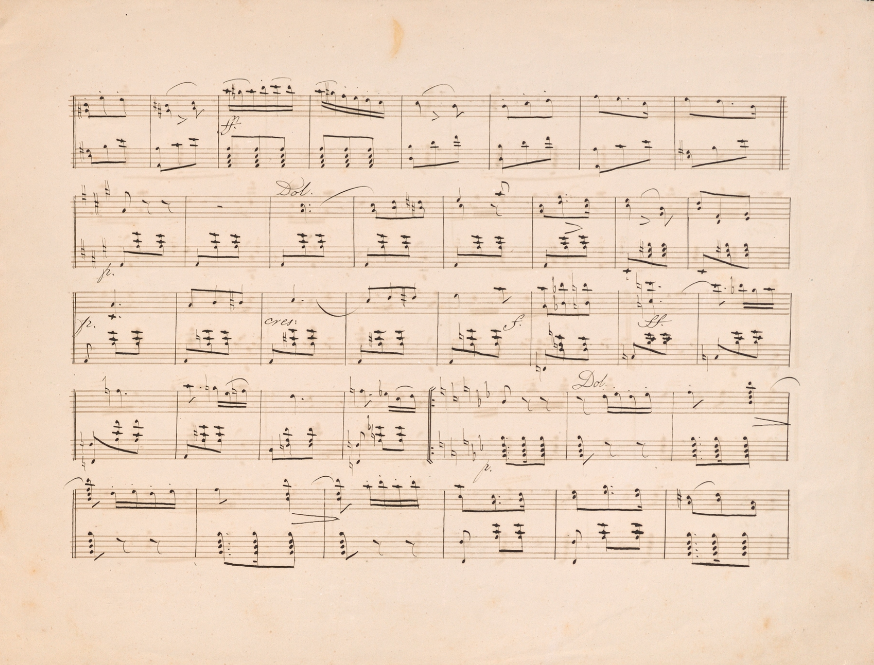 ff.
Dol.
p.
p.
cres.
f.
ff.
Dol.
p.